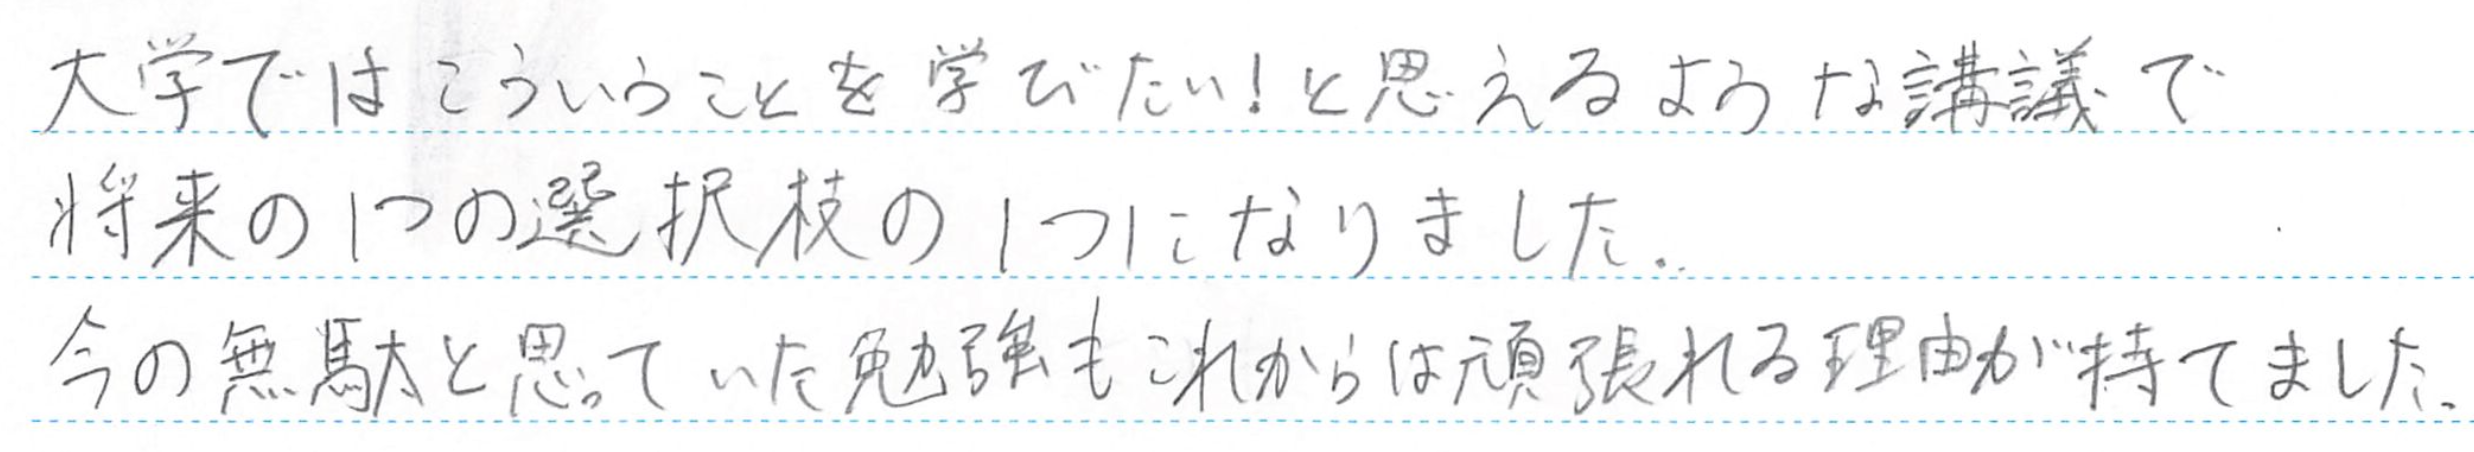 大学ではこういうことを学びたい!と思えるような講議で
将来の1つの選択枝の1つになりました.
今の無駄と思っていた勉強もこれからは頑張れる理由が持てました.